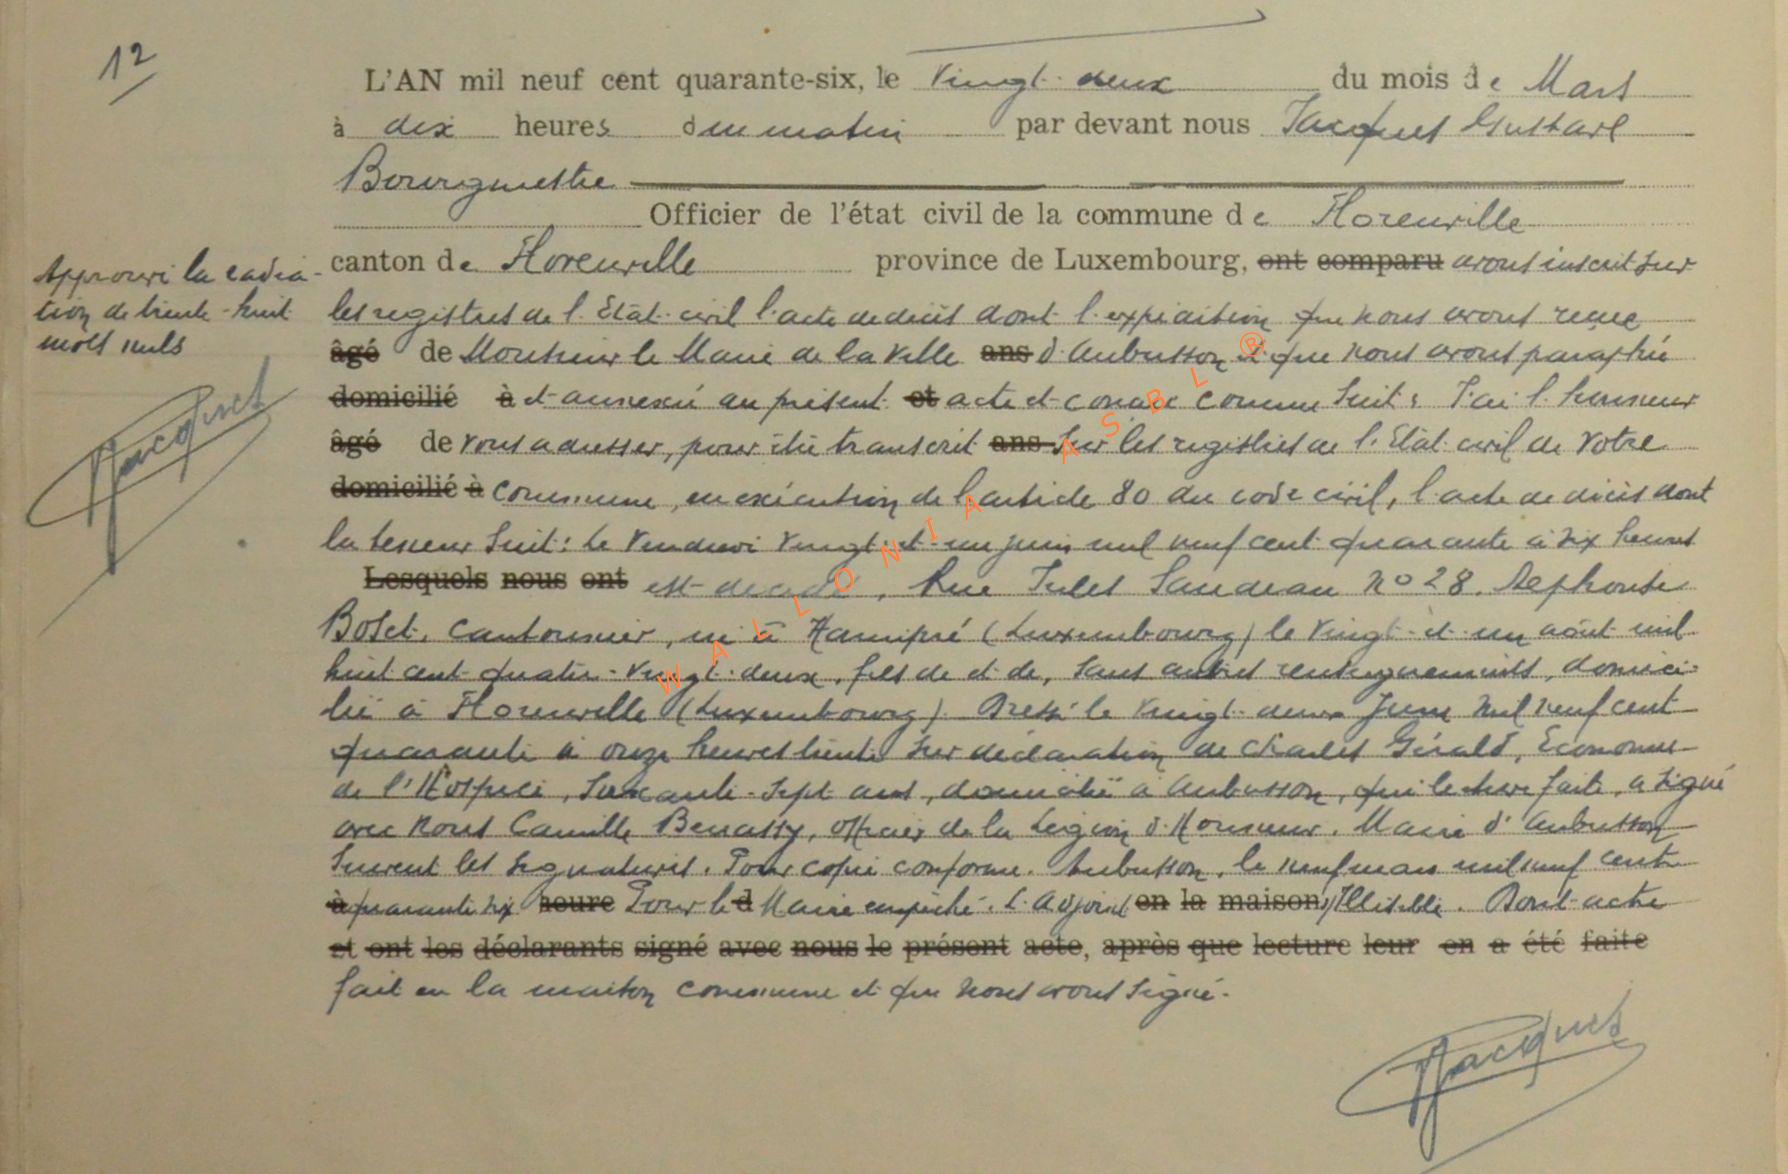 12
L'AN mil neuf cent quarante-six, le vingt-deux du mois de Mars
à dix heures du matin par devant nous Jacques Gustave
Bourgmestre
Officier de l'état civil de la commune de Florenville
canton de Florenville province de Luxembourg, ont comparu avons inscrit sur
les registres de l'Etat-civil l'acte de décès dont l'expédition que nous avons reçue
âgé de Monsieur le Maire de la Ville ans d'Aubusson et que nous avons paraphée
domicilié à et annexée au présent et acte et conçue comme suit: J'ai l'honneur
âgé de vous adresser, pour être transcrit ans sur les registres de l'Etat-civil de votre
domicilié à commune, en exécution de l'article 80 du code civil, l'acte de décès dont
la teneur suit: Le Vendredi vingt-et-un juin mil neuf cent quarante à six heures
Lesquels nous ont est décédé, Rue Jules Sandeau No 28, Alphonse
Bolet, cantonnier, né à Hamipré (Luxembourg) le vingt-et-un août mil
huit cent quatre-vingt-deux, fils de et de, sans autres renseignements, domici-
lié à Florenville (Luxembourg). Dressé le vingt-deux Juin mil neuf cent
quarante à onze heures trente sur déclaration de Charles Gérald, Econome
de l'Hospice, soixante-sept ans, domicilié à Aubusson, qui lecture faite, a signé
avec nous Camille Benassy, officier de la Légion d'Honneur, Maire d'Aubusson
Suivent les signatures. Pour copie conforme. Aubusson, le neuf mars mil neuf cent
à quarante six heure Pour le d Maire empêché. L'adjoint en la maison, s/Illisible. Dont acte
et ont les déclarants signé avec nous le présent acte, après que lecture leur en a été faite
fait en la maison commune et que nous avons signé.
Approuvé la radia-
tion de trente-huit
mots nuls
Jacques
Jacques
WALLONIA ASBL ®